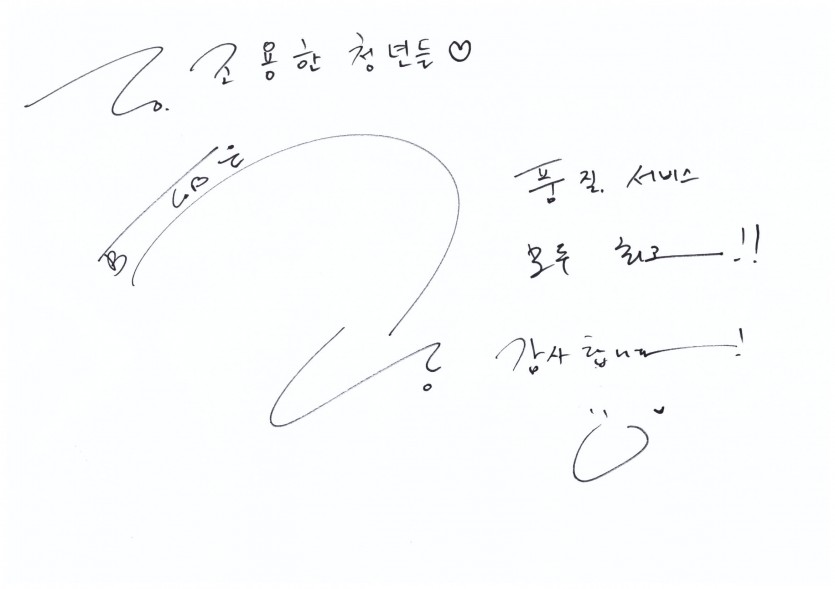 조용한 청년들♡
품질, 서비스
모두 최고 ㅡ!!
감사합니다 ㅡ!